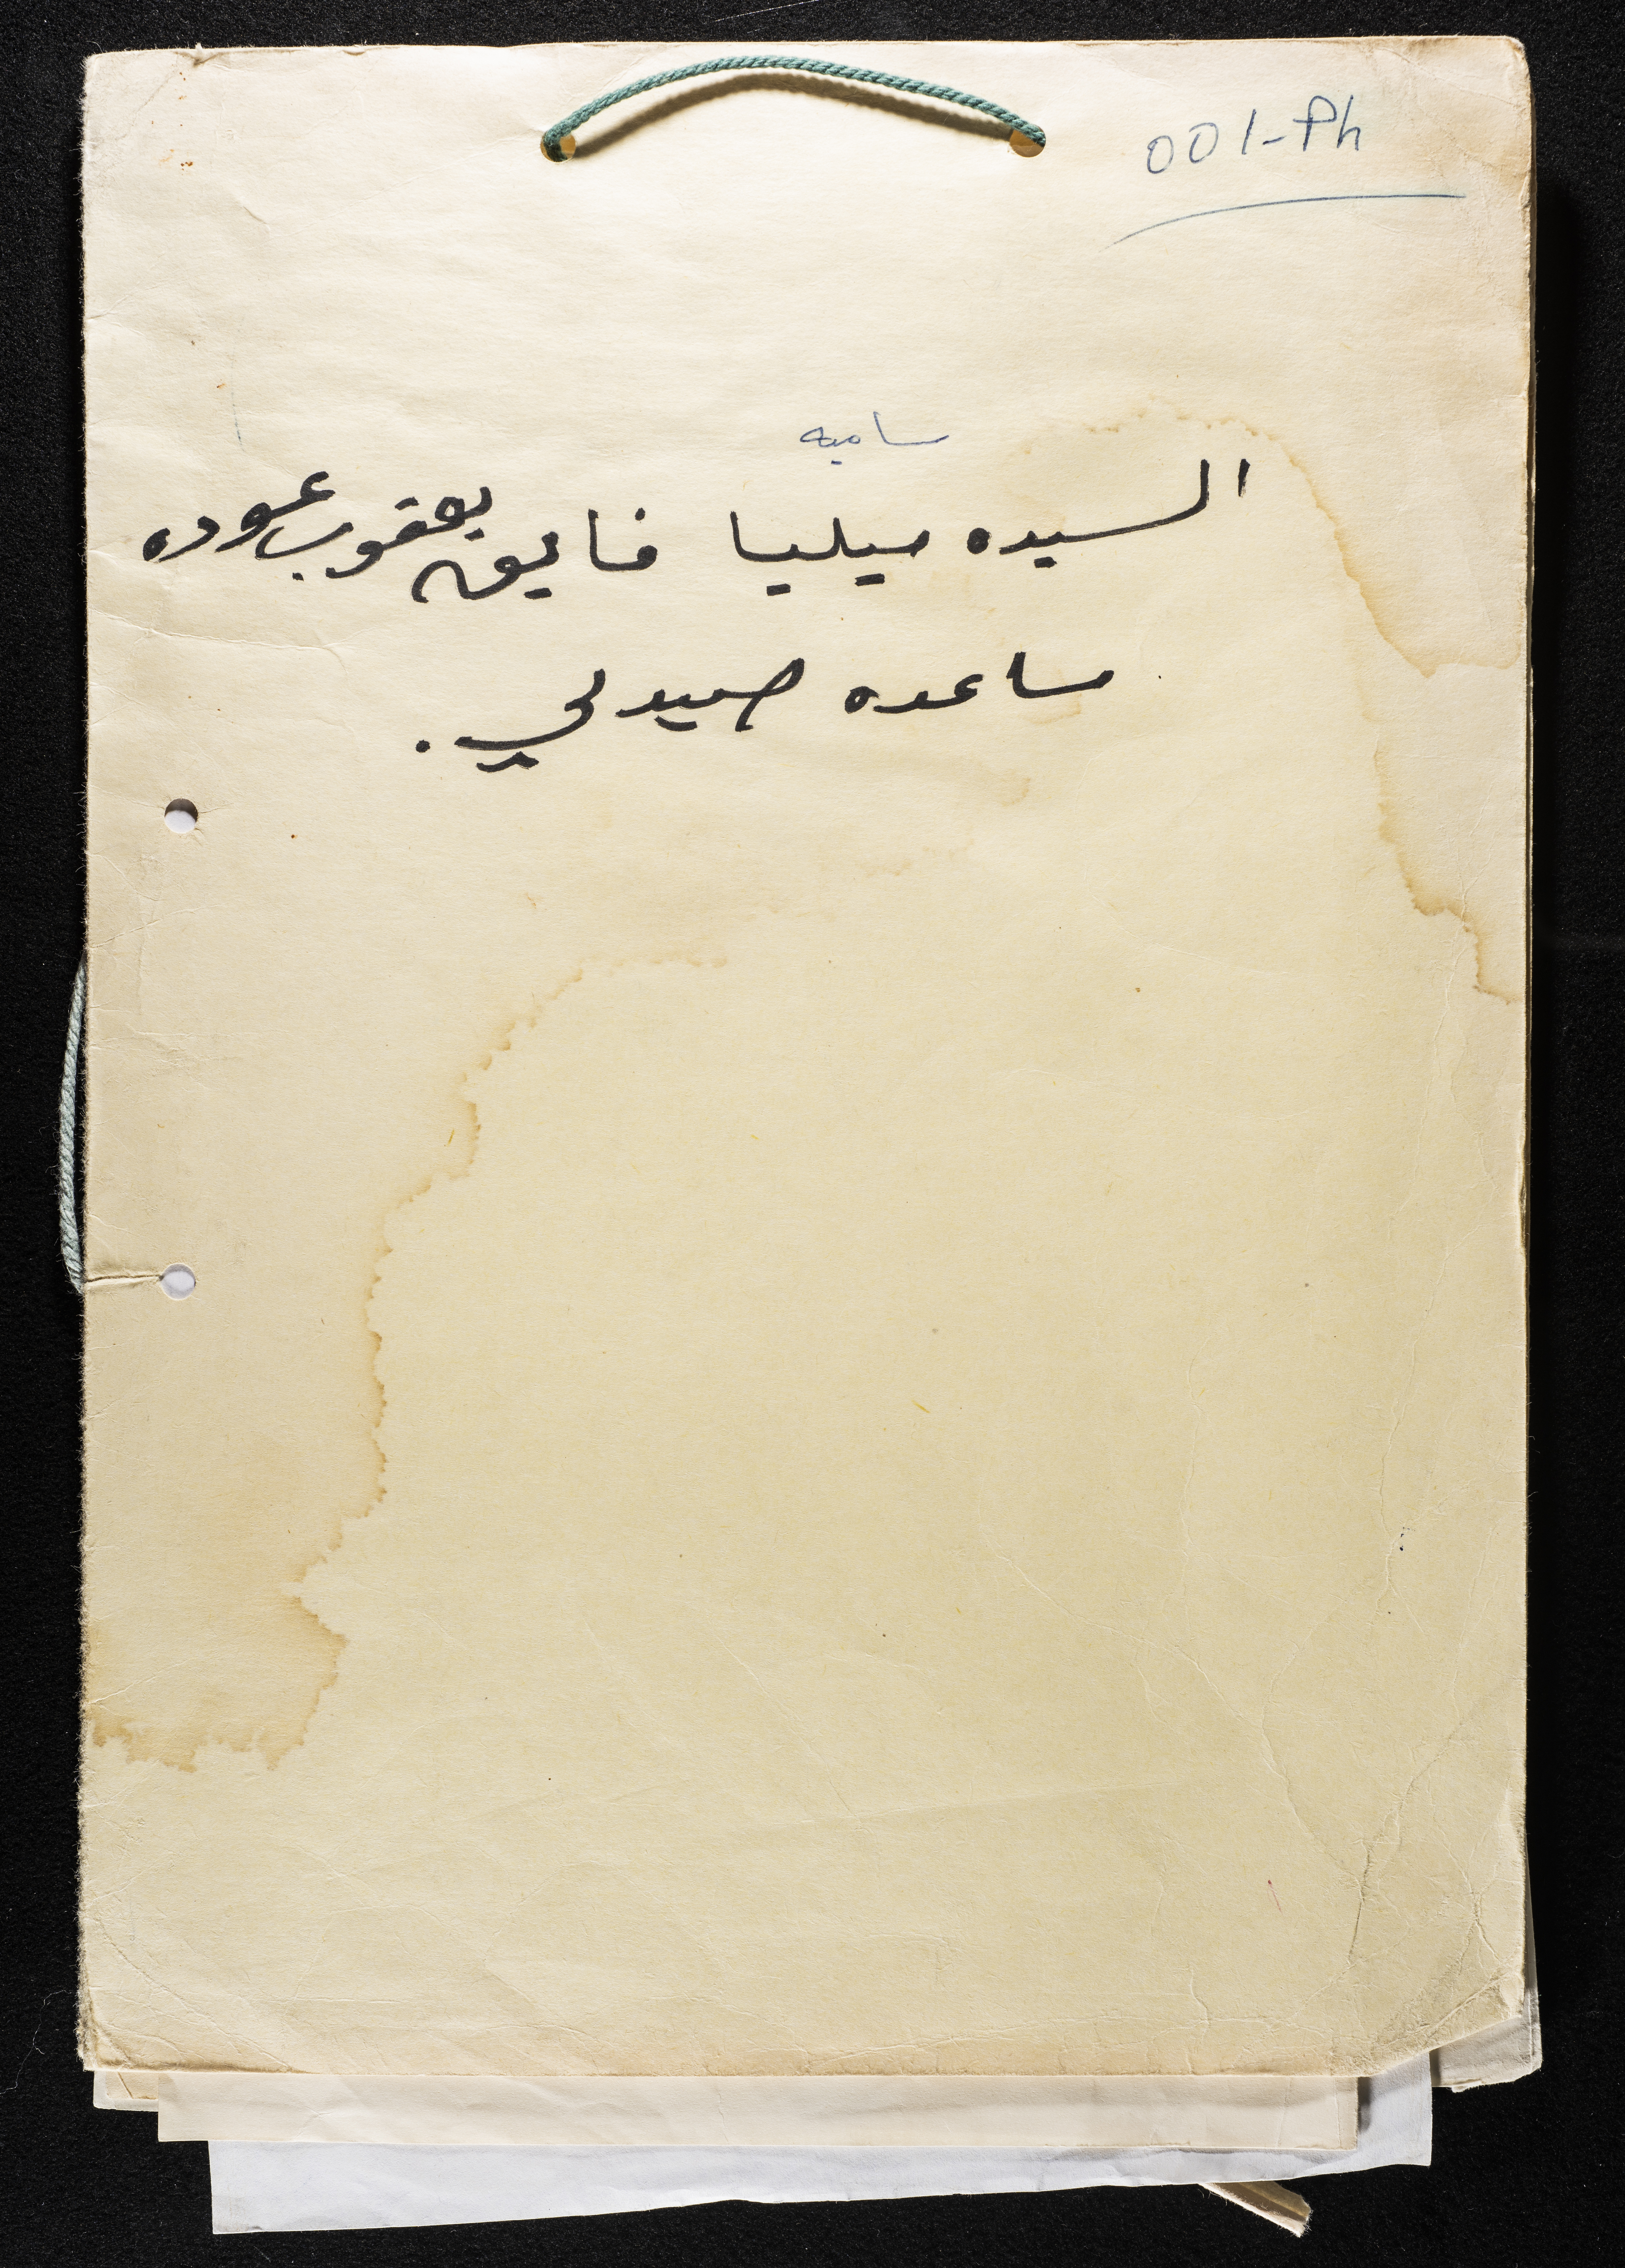 001-Ph
ساميه
السيده ميليا فايق يعقوب عوده
مساعده صيدلي.